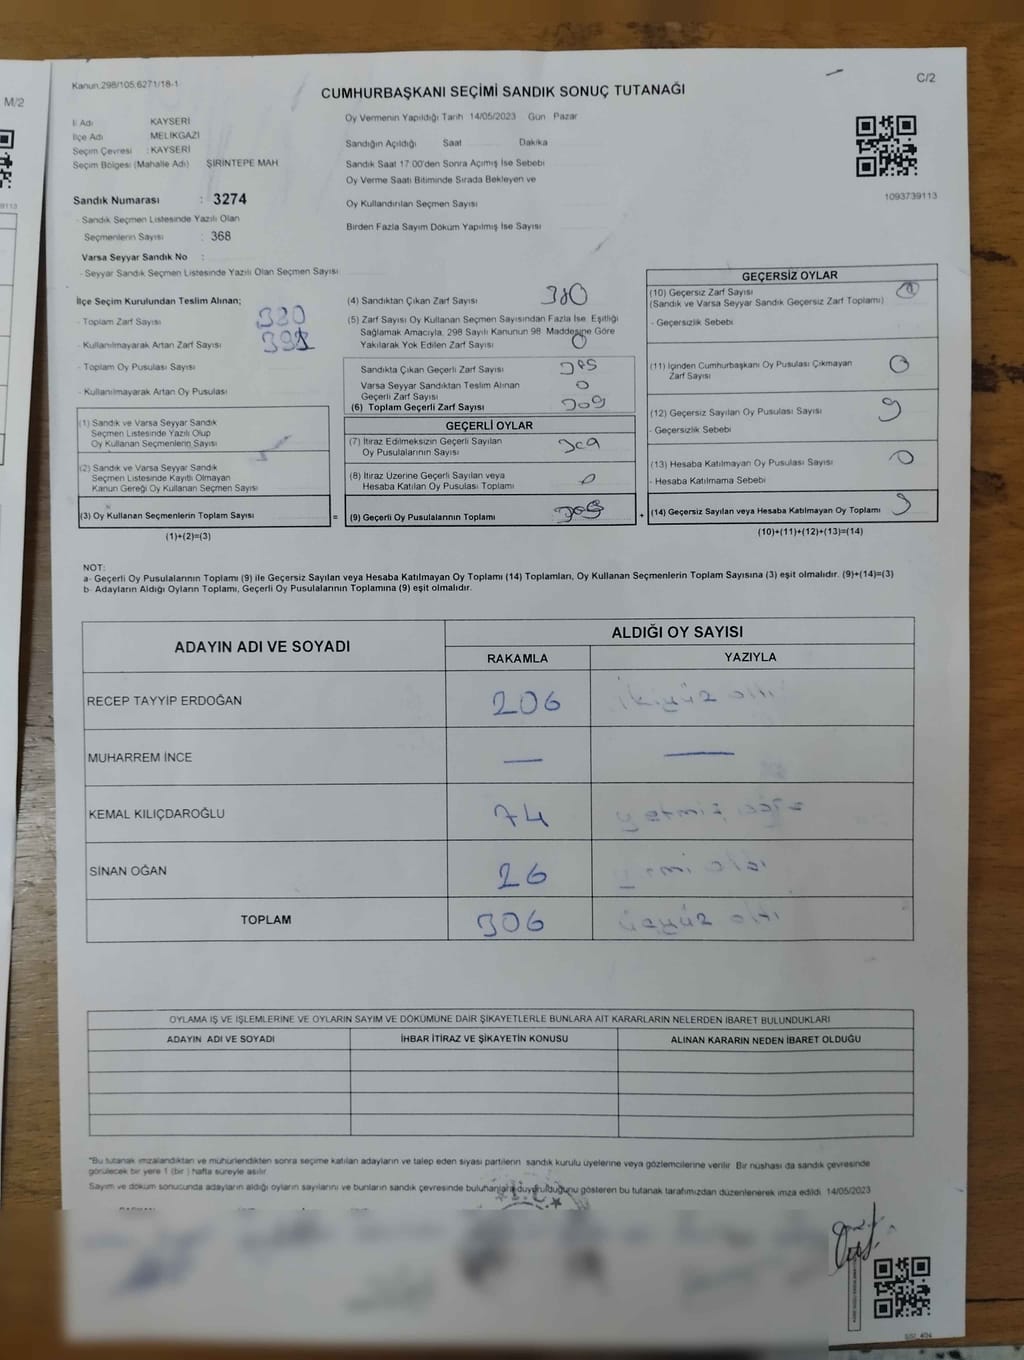 M/2
Kanun:298/105;6271/18-1
C/2
CUMHURBAŞKANI SEÇİMİ SANDIK SONUÇ TUTANAĞI
İl Adı KAYSERİ
İlçe Adı MELİKGAZİ
Seçim Çevresi : KAYSERİ
Seçim Bölgesi (Mahalle Adı) ŞİRİNTEPE MAH
Oy Vermenin Yapıldığı Tarih 14/05/2023 Gün Pazar
Sandığın Açıldığı Saat Dakika
Sandık Saat 17:00'den Sonra Açımış İse Sebebi
Oy Verme Saati Bitiminde Sırada Bekleyen ve
Oy Kullandırılan Seçmen Sayısı
Birden Fazla Sayım Döküm Yapılmış İse Sayısı
1093739113
Sandık Numarası : 3274
- Sandık Seçmen Listesinde Yazılı Olan
Seçmenlerin Sayısı : 368
Varsa Seyyar Sandık No :
- Seyyar Sandık Seçmen Listesinde Yazılı Olan Seçmen Sayısı
İlçe Seçim Kurulundan Teslim Alınan;
- Toplam Zarf Sayısı 380
- Kullanılmayarak Artan Zarf Sayısı
- Toplam Oy Pusulası Sayısı
- Kullanılmayarak Artan Oy Pusulası
(1) Sandık ve Varsa Seyyar Sandık
Seçmen Listesinde Yazılı Olup
Oy Kullanan Seçmenlerin Sayısı
(2) Sandık ve Varsa Seyyar Sandık
Seçmen Listesinde Kayıtlı Olmayan
Kanun Gereği Oy Kullanan Seçmen Sayısı
(3) Oy Kullanan Seçmenlerin Toplam Sayısı
(1)+(2)=(3)
=
(4) Sandıktan Çıkan Zarf Sayısı 380
(5) Zarf Sayısı Oy Kullanan Seçmen Sayısından Fazla İse, Eşitliği
Sağlamak Amacıyla, 298 Sayılı Kanunun 98. Maddesine Göre
Yakılarak Yok Edilen Zarf Sayısı 0
Sandıkta Çıkan Geçerli Zarf Sayısı
Varsa Seyyar Sandıktan Teslim Alınan
Geçerli Zarf Sayısı 0
(6) Toplam Geçerli Zarf Sayısı 309
GEÇERLİ OYLAR
(7) İtiraz Edilmeksizin Geçerli Sayılan
Oy Pusulalarının Sayısı 309
(8) İtiraz Üzerine Geçerli Sayılan veya
Hesaba Katılan Oy Pusulası Toplamı 0
(9) Geçerli Oy Pusulalarının Toplamı
+
GEÇERSİZ OYLAR
(10) Geçersiz Zarf Sayısı
(Sandık ve Varsa Seyyar Sandık Geçersiz Zarf Toplamı)
- Geçersizlik Sebebi
(11) İçinden Cumhurbaşkanı Oy Pusulası Çıkmayan
Zarf Sayısı 0
(12) Geçersiz Sayılan Oy Pusulası Sayısı 9
- Geçersizlik Sebebi
(13) Hesaba Katılmayan Oy Pusulası Sayısı 0
- Hesaba Katılmama Sebebi
(14) Geçersiz Sayılan veya Hesaba Katılmayan Oy Toplamı 9
(10)+(11)+(12)+(13)=(14)
NOT:
a- Geçerli Oy Pusulalarının Toplamı (9) ile Geçersiz Sayılan veya Hesaba Katılmayan Oy Toplamı (14) Toplamları, Oy Kullanan Seçmenlerin Toplam Sayısına (3) eşit olmalıdır. (9)+(14)=(3)
b- Adayların Aldığı Oyların Toplamı, Geçerli Oy Pusulalarının Toplamına (9) eşit olmalıdır.
ADAYIN ADI VE SOYADI ALDIĞI OY SAYISI
RAKAMLA YAZIYLA
RECEP TAYYİP ERDOĞAN 206 ikiyüz altı
MUHARREM İNCE — —
KEMAL KILIÇDAROĞLU 74 yetmiş
SİNAN OĞAN 26
TOPLAM 306 üçyüz altı
OYLAMA İŞ VE İŞLEMLERİNE VE OYLARIN SAYIM VE DÖKÜMÜNE DAİR ŞİKAYETLERLE BUNLARA AİT KARARLARIN NELERDEN İBARET BULUNDUKLARI
ADAYIN ADI VE SOYADI İHBAR İTİRAZ VE ŞİKAYETİN KONUSU ALINAN KARARIN NEDEN İBARET OLDUĞU
*Bu tutanak imzalandıktan ve mühürlendikten sonra seçime katılan adayların ve talep eden siyasi partilerin sandık kurulu üyelerine veya gözlemcilerine verilir. Bir nüshası da sandık çevresinde
görülecek bir yere 1 (bir ) hafta süreyle asılır.
Sayım ve döküm sonucunda adayların aldığı oyların sayılarını ve bunların sandık çevresinde bulunanlara duyurulduğunu gösteren bu tutanak tarafımızdan düzenlenerek imza edildi. 14/05/2023